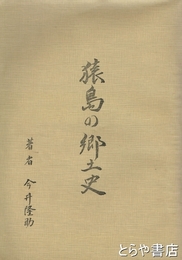 猿島の郷土史
著者 今井隆助
とらや書店